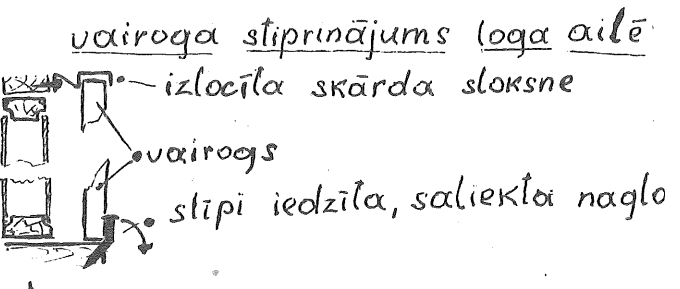 vairoga stiprinājums loga ailē
izlocīta skārda sloksne
vairogs
slīpi iedzīta, saliekta nagla